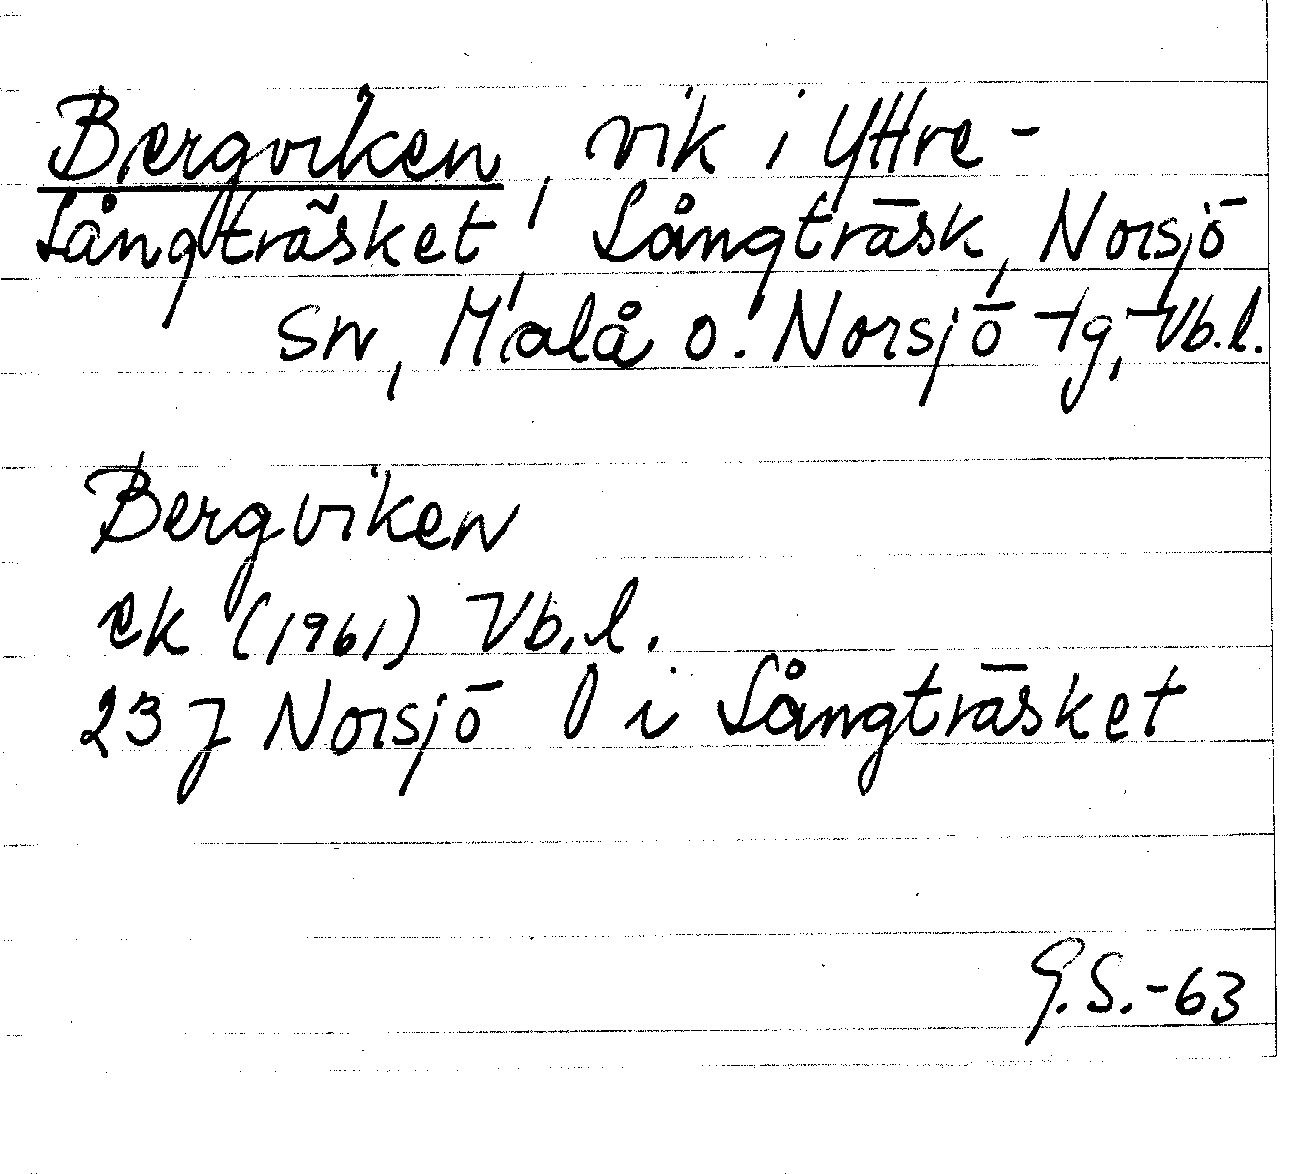 Bergviken, vik i Yttre-
Långträsket, Långträsk, Norsjö
sn, Malå o. Norsjö tg, Vb.l.
Bergviken
ek (1961) Vb.l.
23 J Norsjö l i Långträsket
G.S.-63